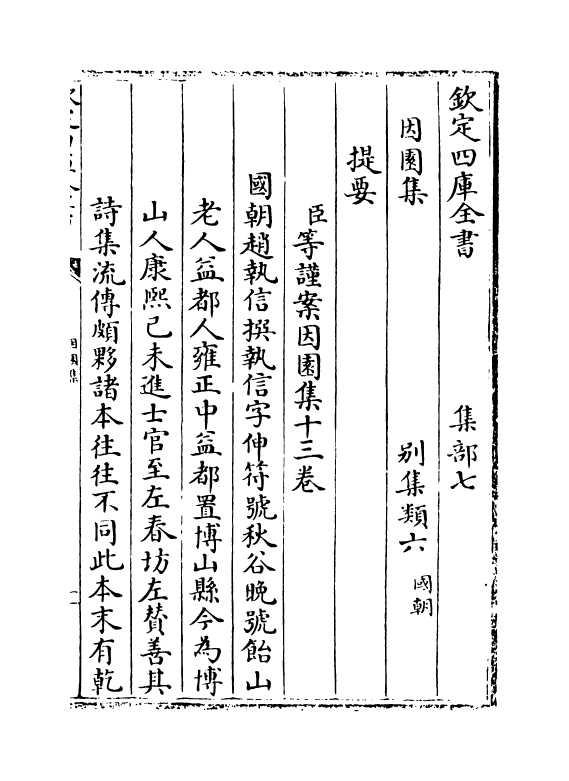 欽定四庫全書　集部七
因園集　別集類六國朝
提要
臣等謹案因園集十三卷
國朝趙執信撰執信字伸符號秋谷晩號飴山
老人益都人雍正中益都置博山縣今為博
山人康熙己未進士官至左春坊左賛善其
詩集流傳頗夥諸本往往不同此本末有乾
因園集